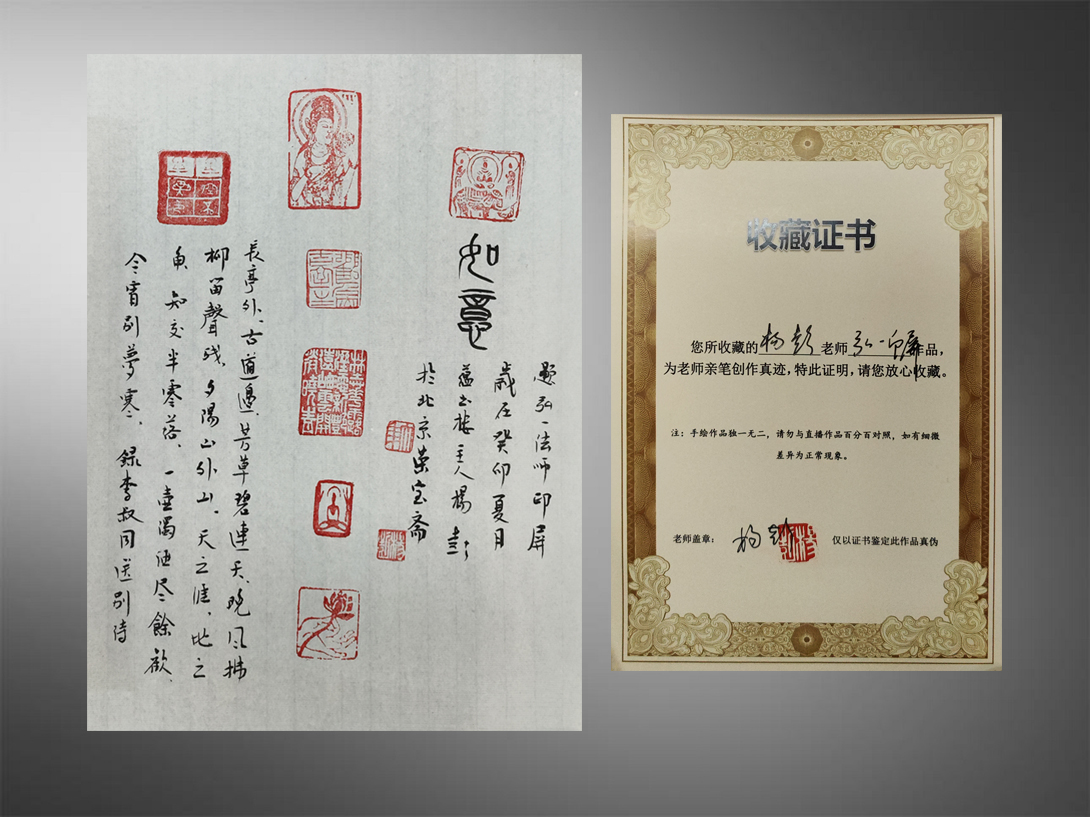 如意
题弘一法师印屏
歲在癸卯夏月
楼主人楊彭
於北京荣宝斋
長亭外、古道邊、芳草碧連天、晚风拂
柳笛聲残、夕陽山外山、天之涯、地之
角、知交半零落、一壶濁酒尽餘歡、
今宵别夢寒、録李叔同送别诗
收藏证书
您所收藏的杨彭老师弘一印屏作品，
为老师亲笔创作真迹，特此证明，请您放心收藏。
注：手绘作品独一无二，请勿与直播作品百分百对照，如有细微
差异为正常现象。
老师盖章：杨彭 仅以证书鉴定此作品真伪